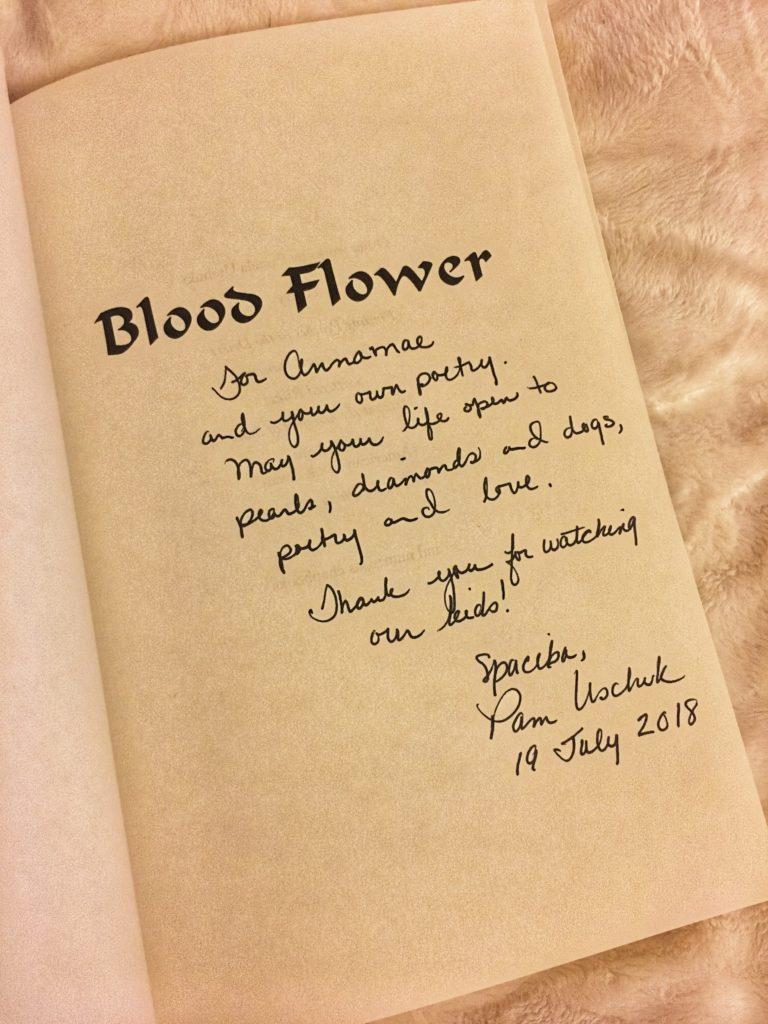 Blood Flower
For Annamae
and your own poetry.
May your life open to
pearls, diamonds and dogs,
poetry and love.
Thank you for watching
our kids!
Spaciba,
Pam Uschuk
19 July 2018